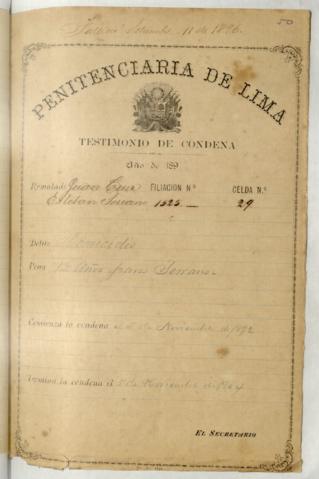 50
Setiembre 11 de 1896.
PENITENCIARIA DE LIMA
TESTIMONIO DE CONDENA
Año de 189
Rematado FILIACION Nº CELDA N.º
Esteban 1523 29
Delito Homicidio
Pena 12 Años
Comienza la condena el 5 de Noviembre de 1892
Termina la condena el 5 de Noviembre de 1904
EL SECRETARIO